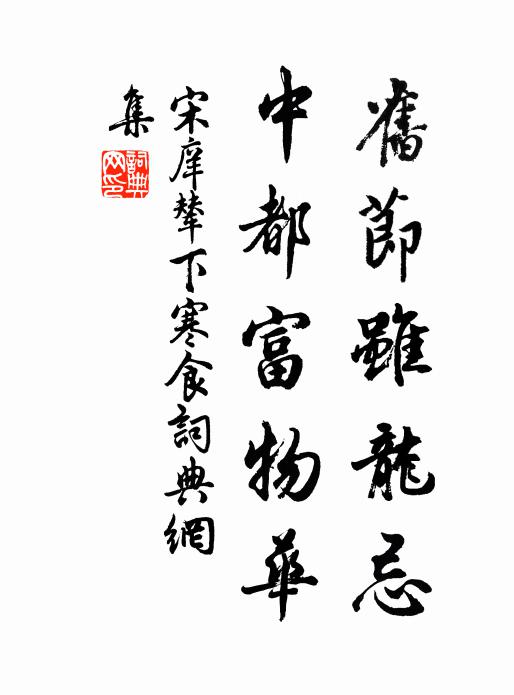 舊節雖龍忌
中都富物華
宋庠輦下寒食詞典網
集
詞典網印